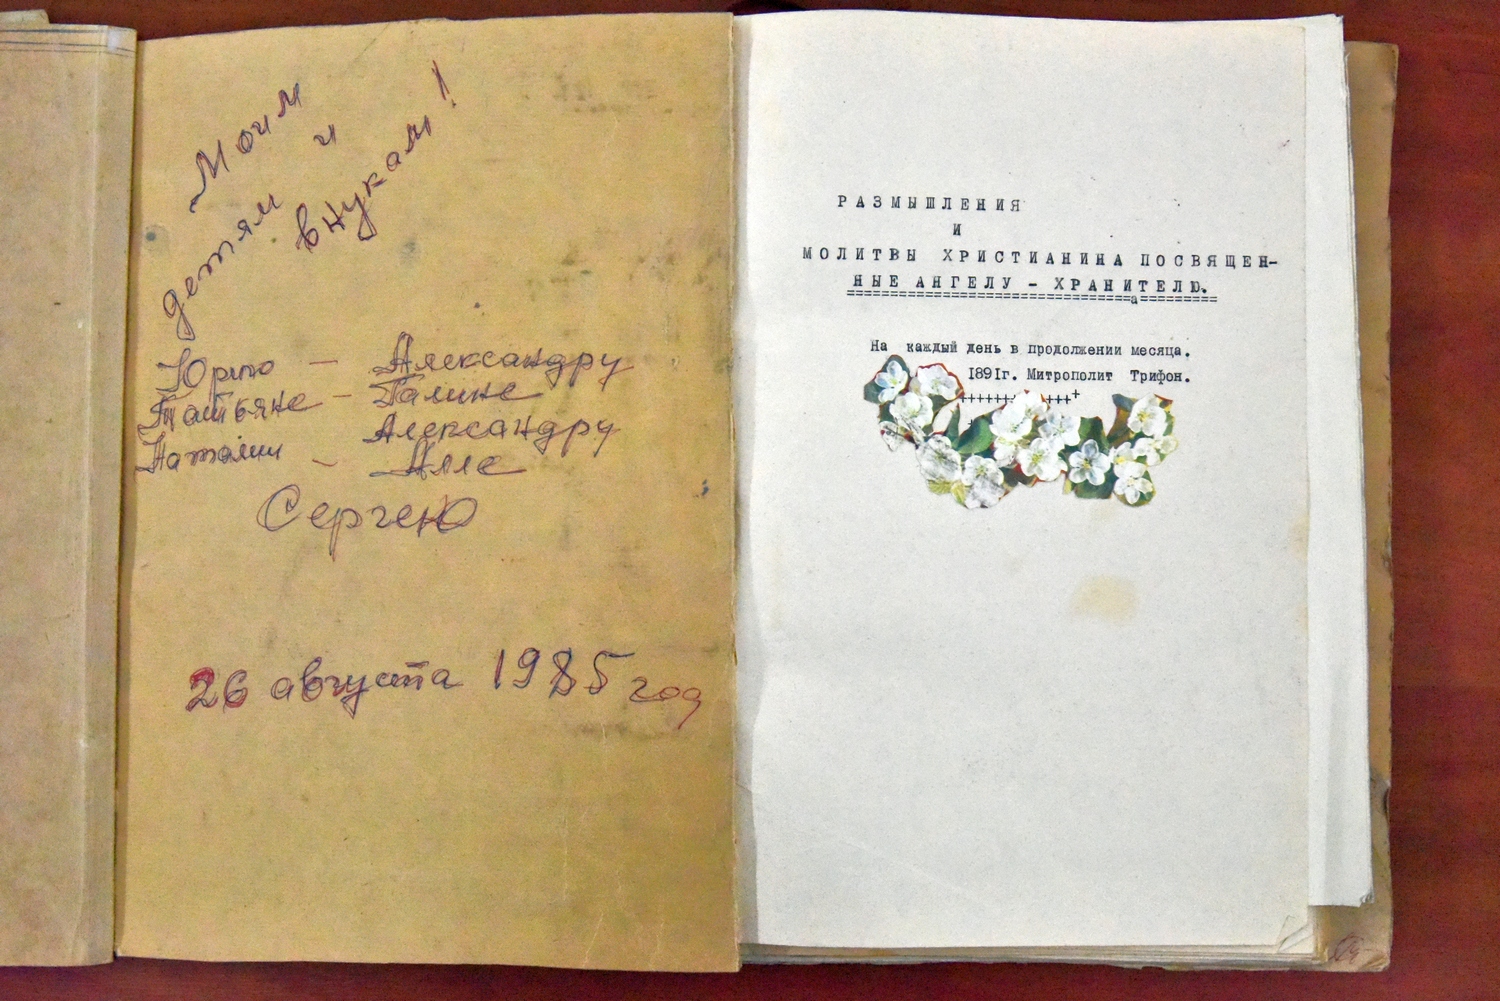 Моим
детям и
внукам!
Юрию — Александру
Татьяне — Галине
Александру
Наталии — Алле
Сергею
26 августа 1985 год
РАЗМЫШЛЕНИЯ
И
МОЛИТВЫ ХРИСТИАНИНА ПОСВЯЩЕН-
НЫЕ АНГЕЛУ - ХРАНИТЕЛЮ.
=====================а=========
На каждый день в продолжении месяца.
1891г. Митрополит Трифон.